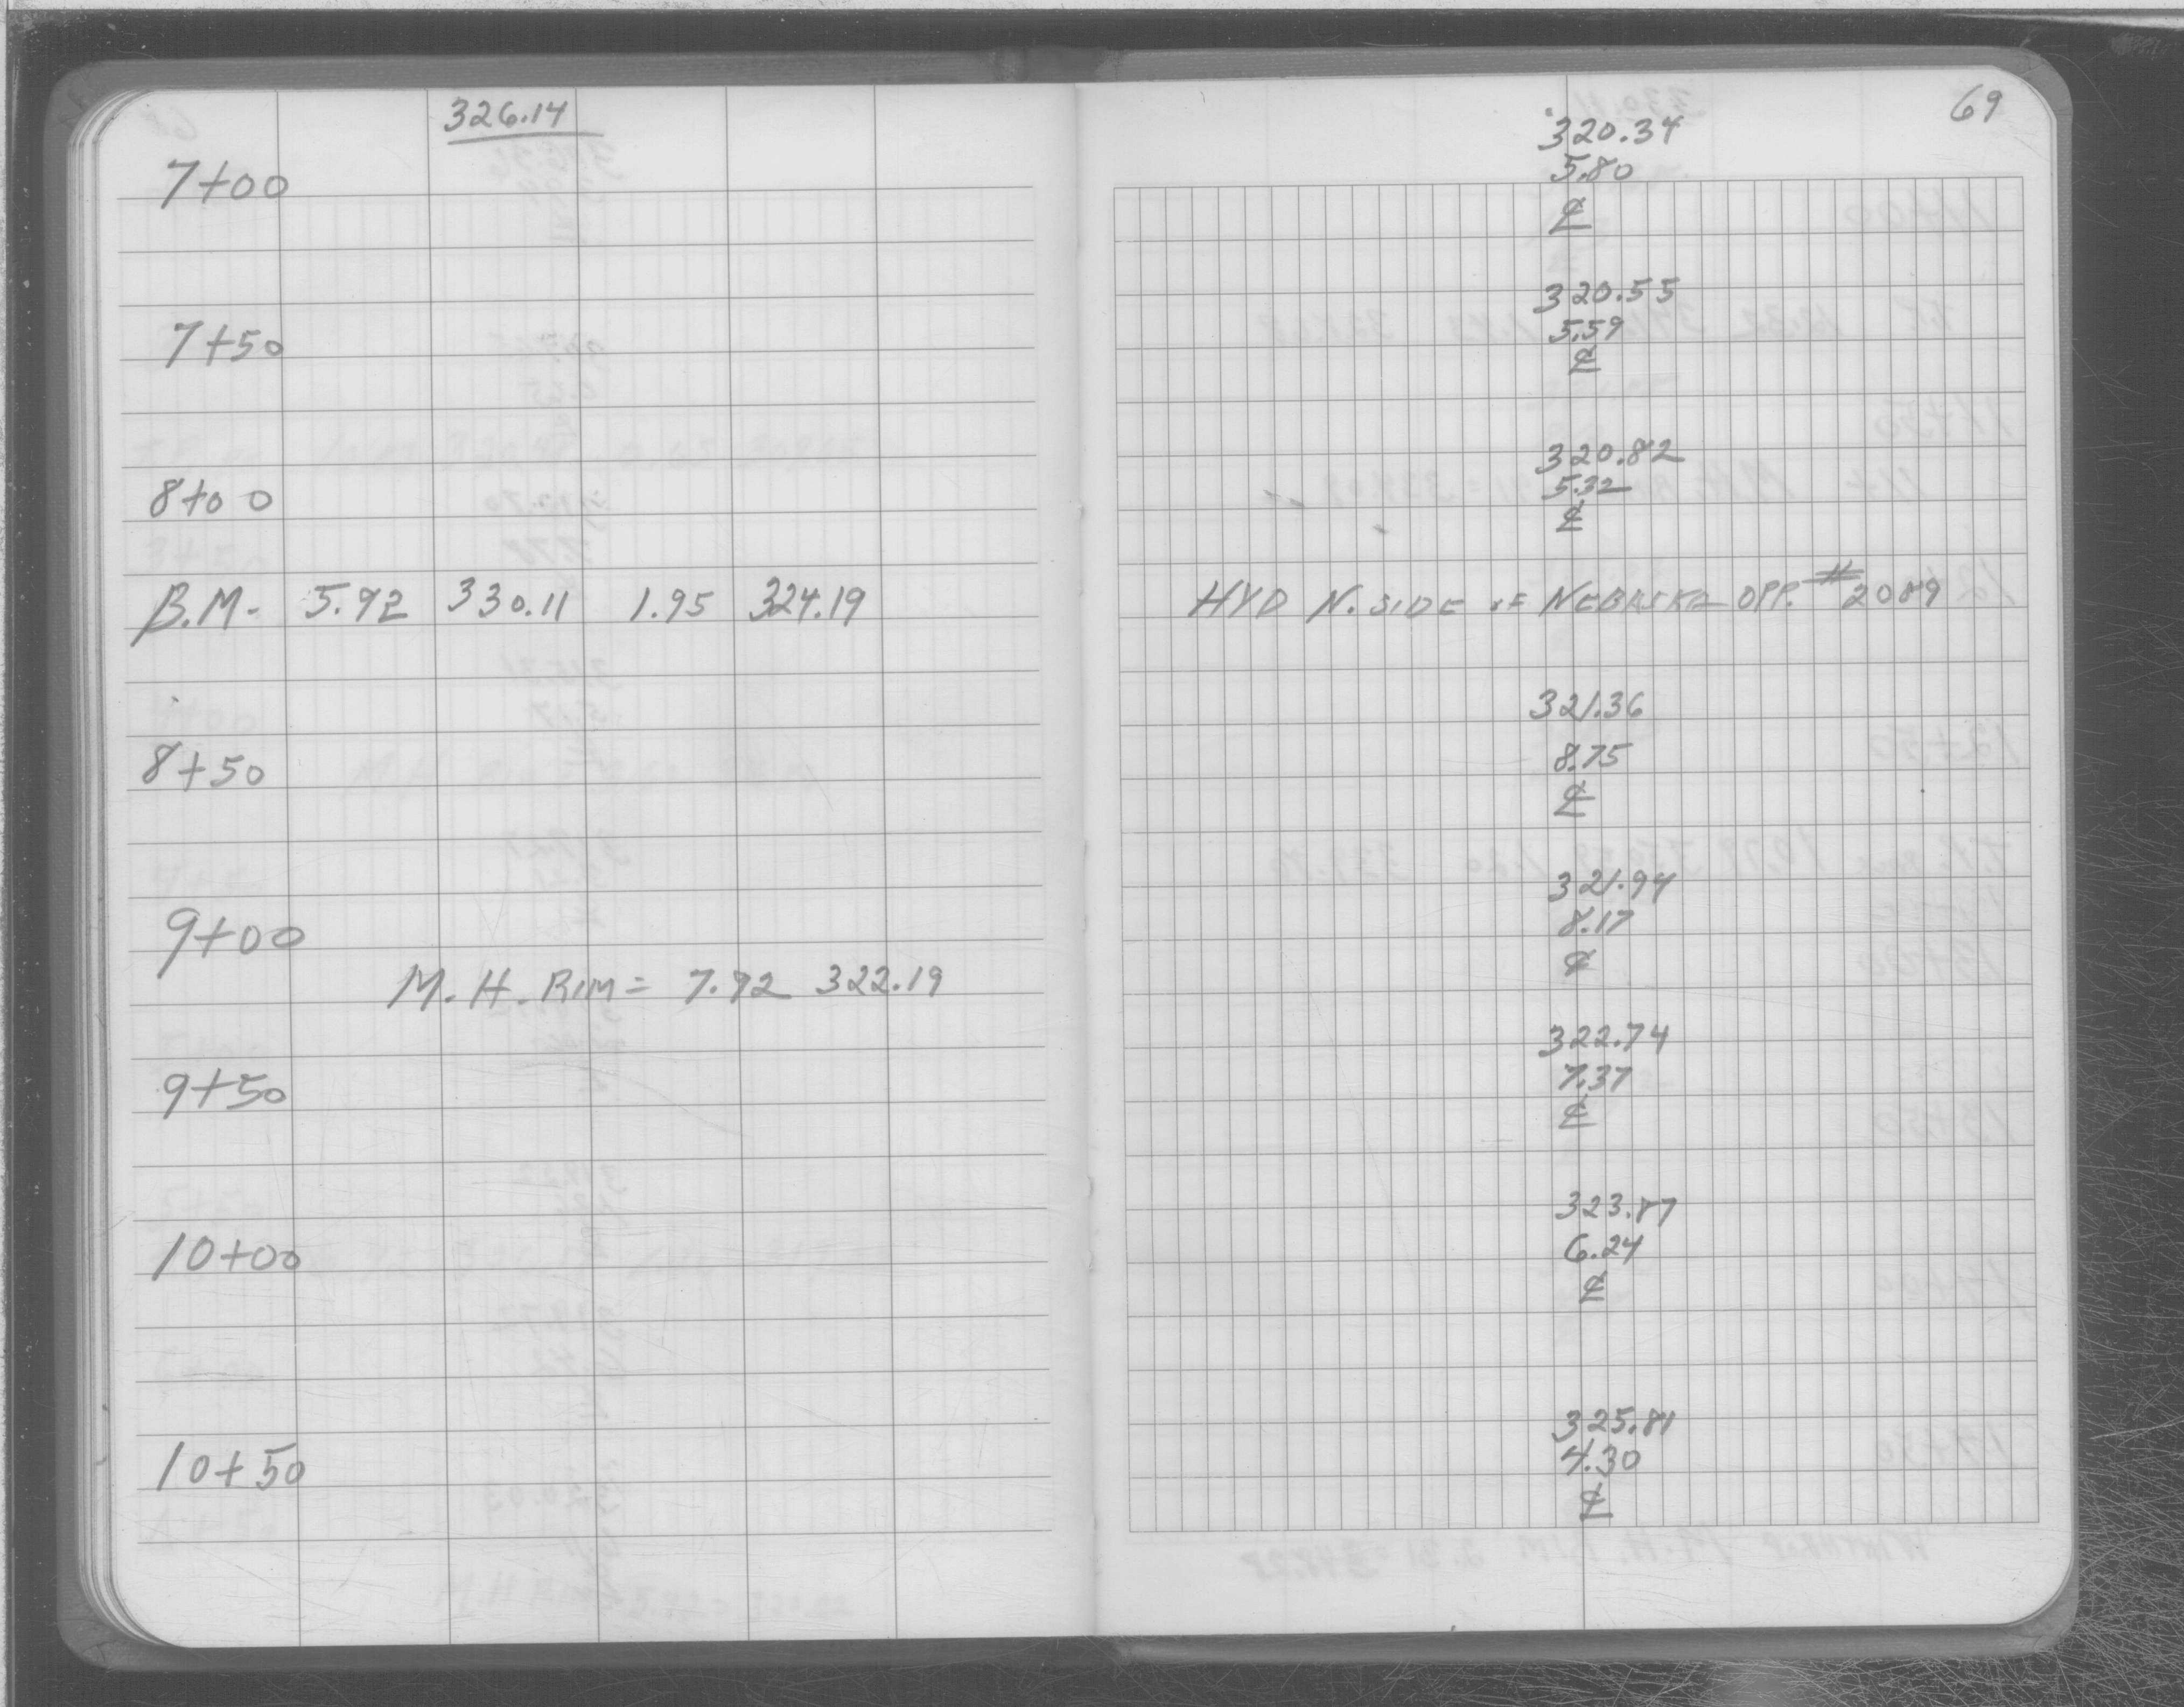 326.14
7+00
7+50
8+00
B.M. 5.92 330.11 1.95 324.19
8+50
9+00
M.H. RIM = 7.92 322.19
9+50
10+00
10+50
69
320.34
5.80
℄
320.55
5.59
℄
320.82
5.32
℄
HYD N. SIDE OF NEBASKA OPP. #2089
321.36
8.75
℄
321.94
8.17
℄
322.74
7.37
℄
323.87
6.24
℄
325.81
4.30
℄